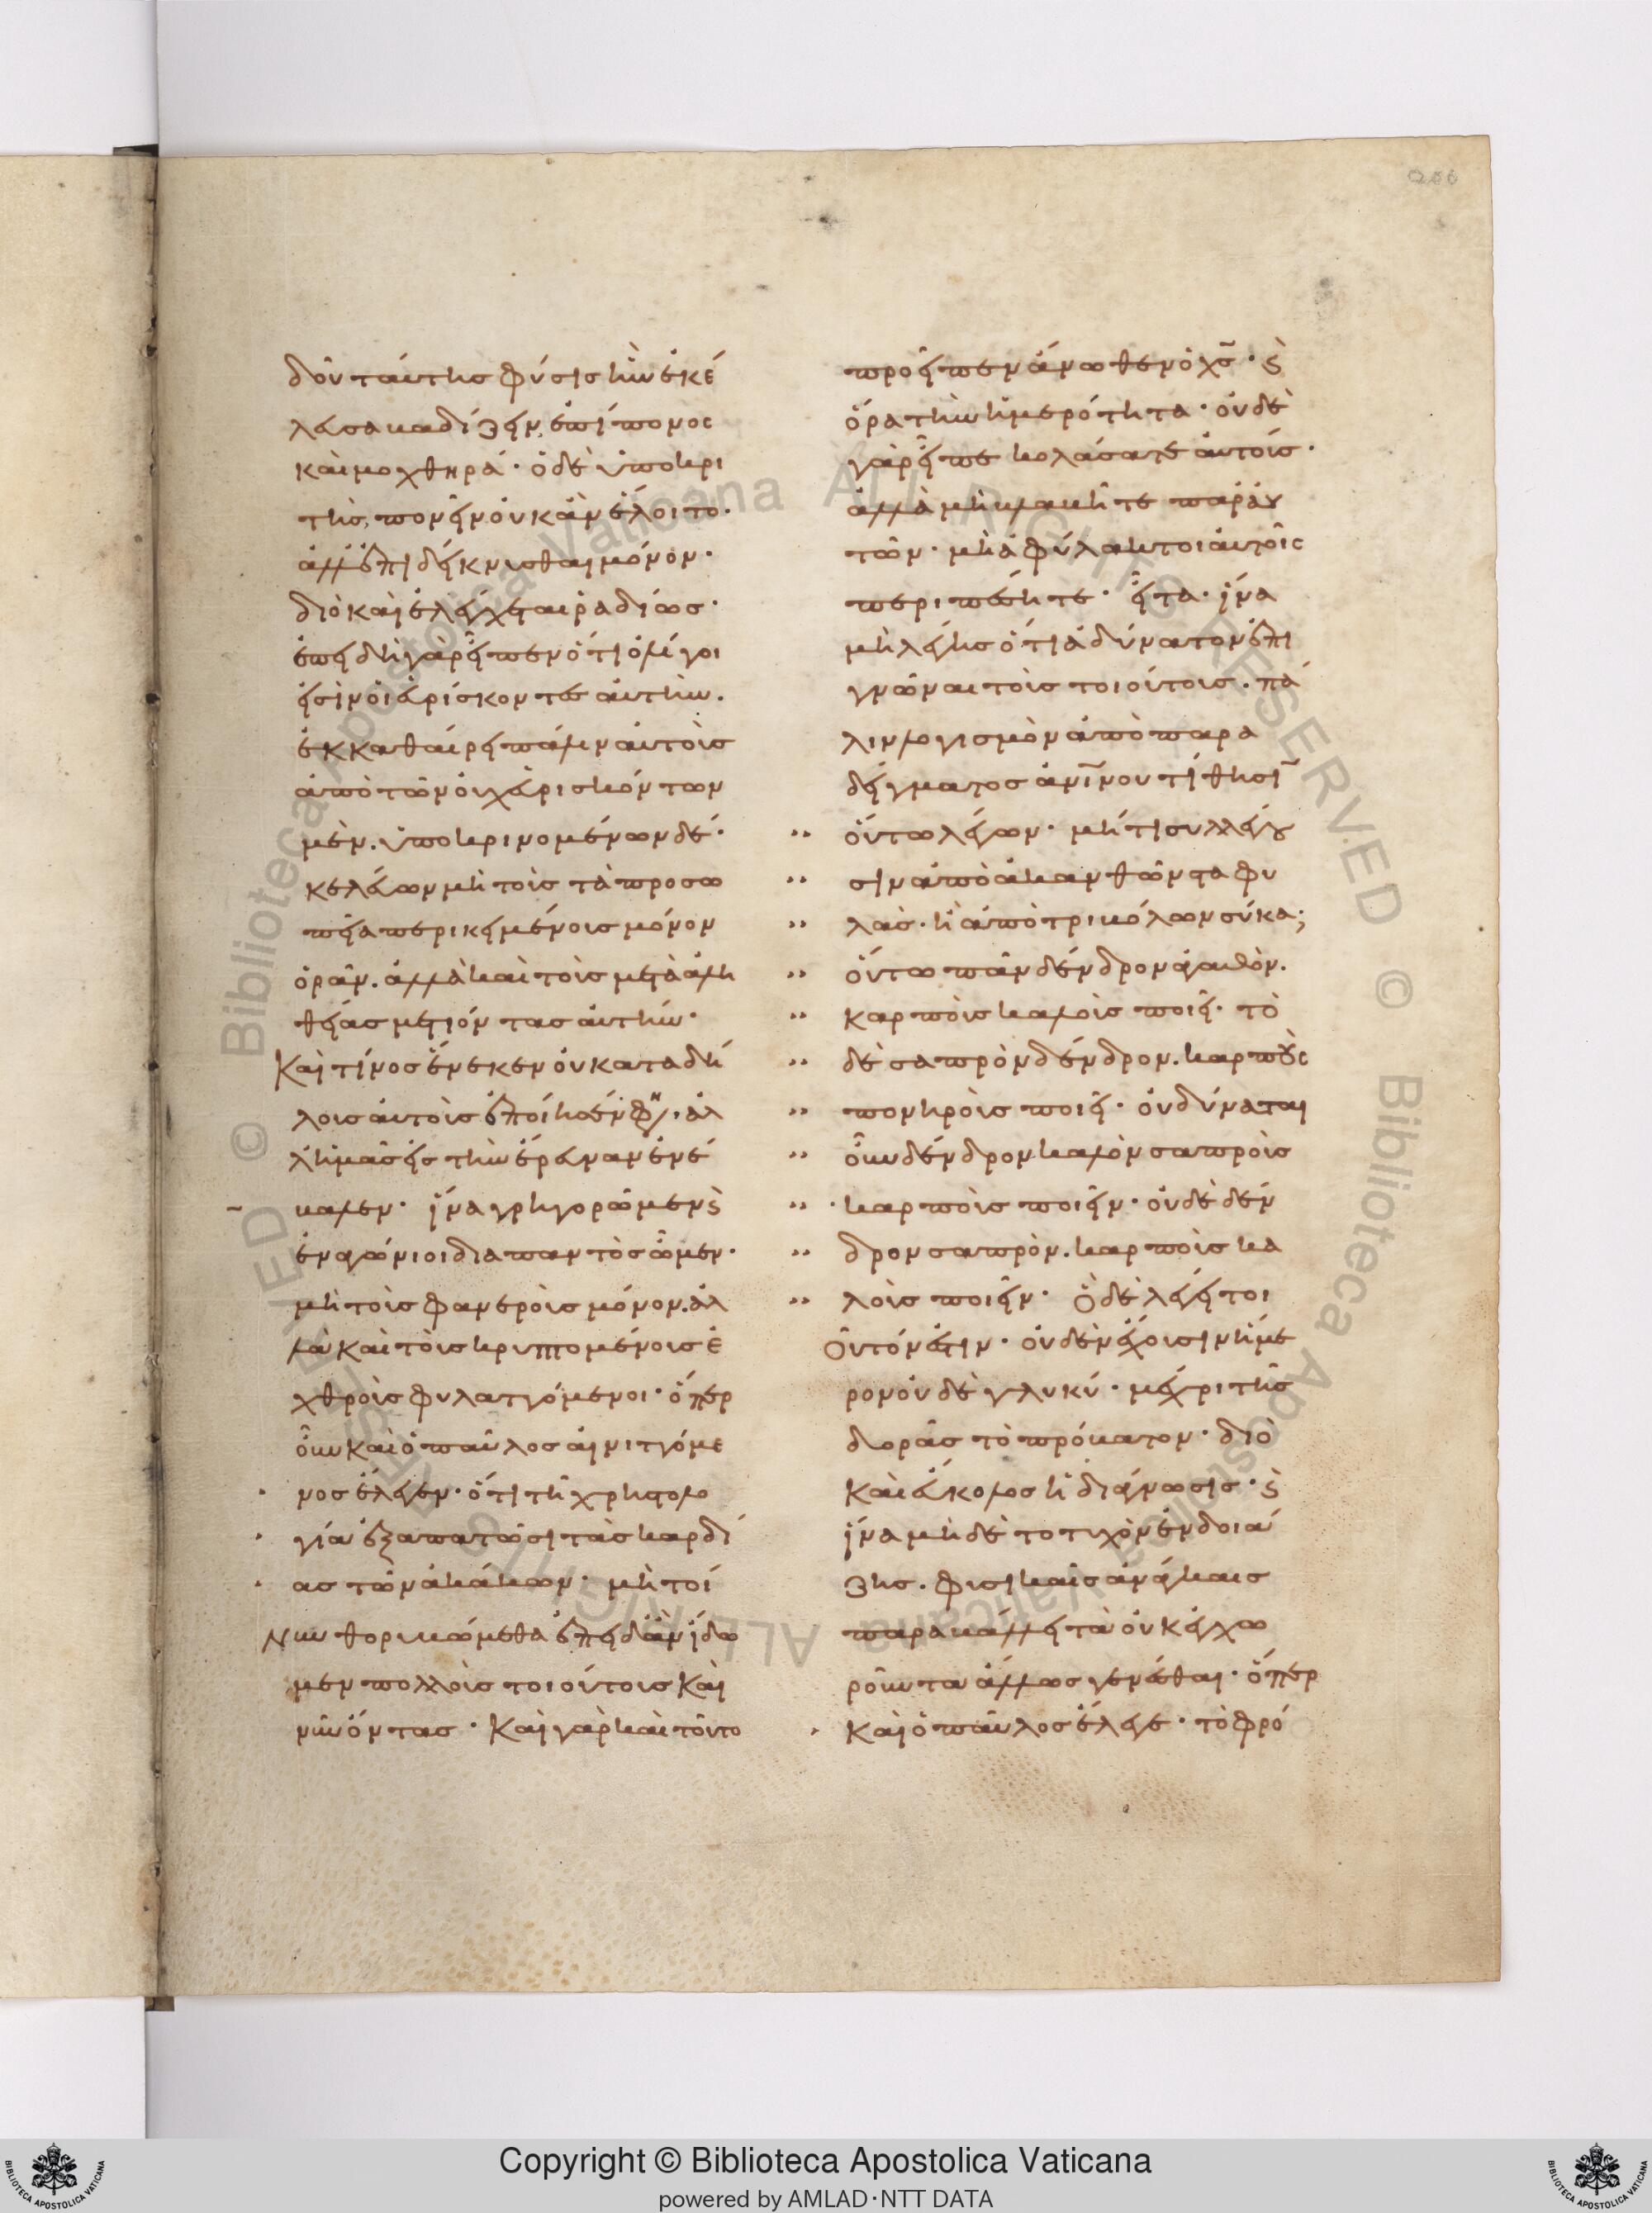 δὸν ταύτης φύσις ἣν ἐκέ
λευσε βαδίζειν, ἐπίπονος
καὶ μοχθηρά· ὁ δὲ ὑποκρι
τὴς, πονεῖν οὐκ ἂν ἕλοιτο·
ἀλλ' ἐπιδείκνυσθαι μόνον·
διὸ καὶ ἐλέγχεται ῥαδίως·
ἐπειδὴ γὰρ εἶπεν ὅτι ὀλίγοι
εἰσὶν οἱ εὑρίσκοντες αὐτὴν.
ἐκκαθαίρει πάλιν αὐτοὺς
ἀπὸ τῶν οὐχ εὑρισκόντων
μὲν. ὑποκρινομένων δέ·
κελεύων μὴ τοῖς τὰ προσω
πεῖα περικειμένοις μόνον
ὁρᾶν. ἀλλὰ καὶ τοῖς μετὰ ἀλη
θείας μετιόντας αὐτήν·
Καὶ τίνος ἕνεκεν οὐ καταδή
λους αὐτοὺς ἐποίησεν φη(σι)· ἀλ
λ' ἡμᾶς εἰς τὴν ἔρευναν ἐνέ
βαλεν· ἵνα γρηγορῶμεν ϗ
ἐναγώνιοι διαπαντὸς ὦμεν·
μὴ τοὺς φανεροὺς μόνον. ἀλ
λὰ καὶ τοὺς κρυπτομένους ἐ
χθροὺς φυλαττόμενοι· ὅπερ
οὖν καὶ ὁ παῦλος αἰνιττόμε
νος ἔλεγεν· ὅτι τῇ χρηστολο
γία ἐξαπατῶσι τὰς καρδί
ας τῶν ἀκάκων· μὴ τοί
νυν θορυβώμεθα ἐπειδὰν ἴδω
μεν πολλοὺς τοιούτους καὶ
νῦν ὄντας· Καὶ γὰρ καὶ τοῦτο
προεῖπεν ἄνωθεν ὁ χς· ϗ
ὅρα τὴν ἡμερότητα· οὐδὲ
γὰρ εἶπε κολάσατε αὐτούς·
ἀλλὰ μὴ βλαβῆτε παρ' αυ
τῶν· μὴ ἀφύλακτοι αὐτοῖς
περιπέσητε· εἶτα· ἵνα
μὴ λέγης ὅτι ἀδύνατον ἐπι
γνῶναι τοὺς τοιούτους. πά
λιν λογισμὸν ἀπὸ παρα
δείγματος ἀνινου τίθησι
οὕτω λέγων· μήτι συλλέγου
σιν ἀπὸ ἀκανθῶν σταφυ
λάς· ἢ ἀπὸ τριβόλων σύκα;
οὕτω πᾶν δένδρον ἀγαθὸν.
καρποὺς καλοὺς ποιεῖ· τὸ
δὲ σαπρὸν δένδρον. καρποὺς
πονηροὺς ποιεῖ· οὐ δύναται
οὖν δένδρον καλὸν σαπροὺς
καρποὺς ποιεῖν· οὐδὲ δέν
δρον σαπρὸν. καρποὺς κα
λοὺς ποιεῖν· Ὃ δὲ λέγει τοι
οῦτόν ἐστιν· οὐδὲν ἔχουσιν ἥμε
ρον οὐδὲ γλυκύ· μέχρι τῆς
δορᾶς τὸ πρόβατον· διὸ
καὶ εὔκολος ἡ διάγνωσις· ϗ
ἵνα μὴ δὲ το τυχὸν ἐνδοιά
ζης. φυσικαῖς ἀνάγκαις
παραβάλλει τὰ οὐκ ἐγχω
ροῦντα ἄλλως γενέσθαι· ὅπερ
καὶ ὁ παῦλος ἔλεγε· τὸ φρό